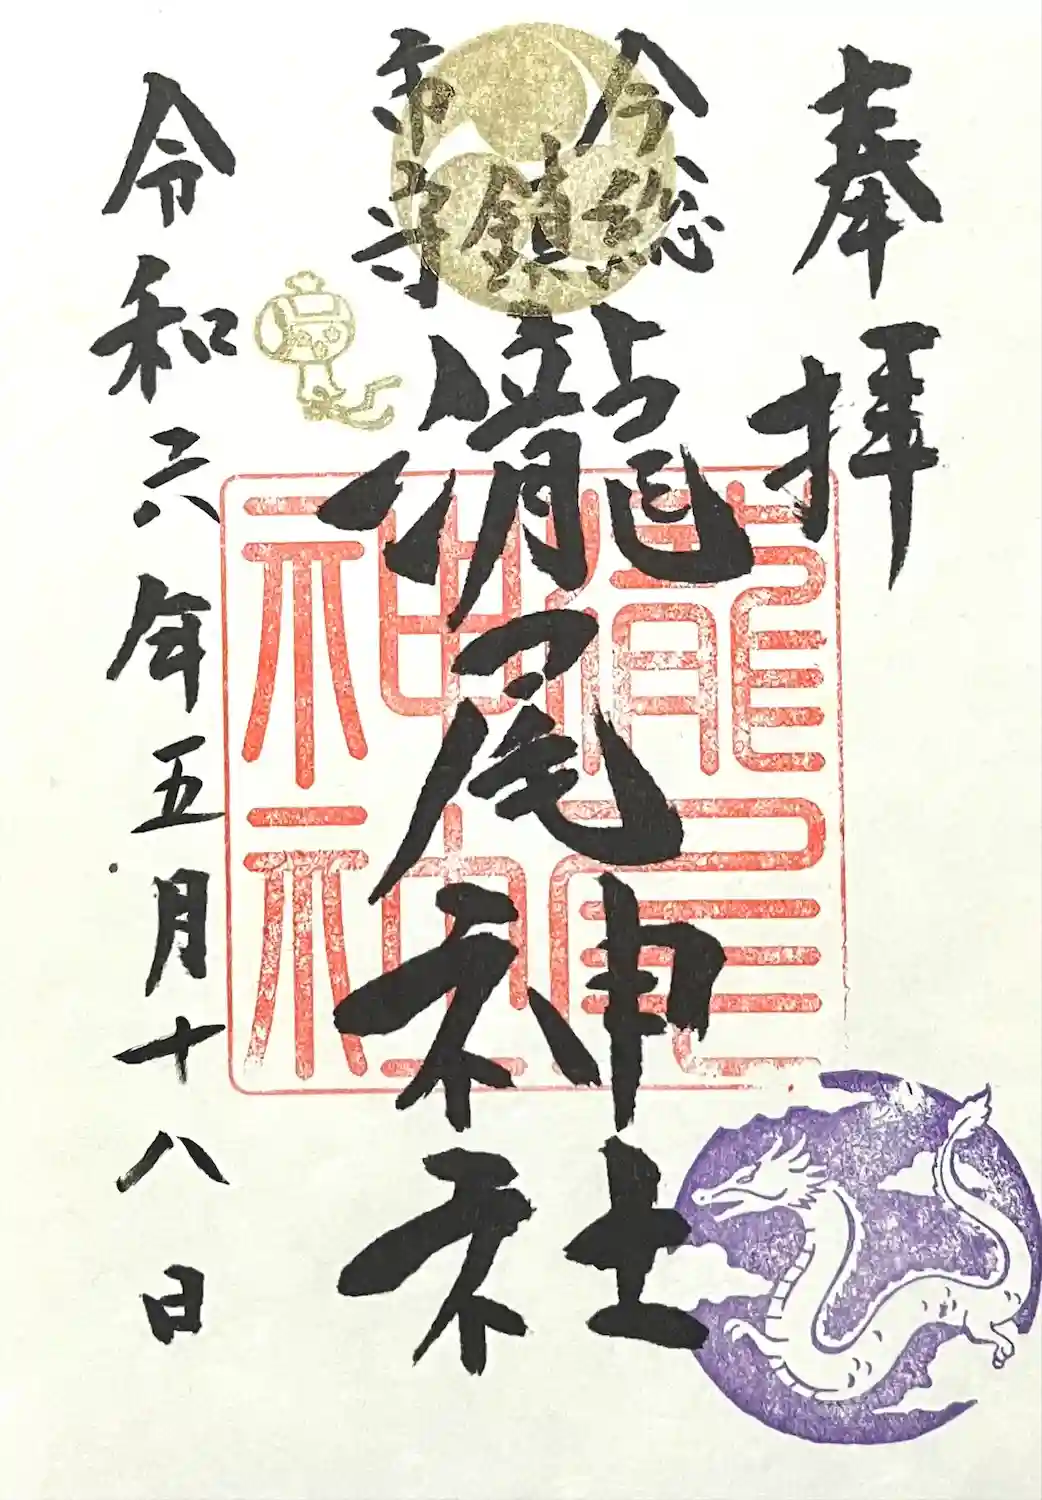 奉拝
今市
総鎮守
瀧尾神社
令和六年五月十八日
瀧尾神社